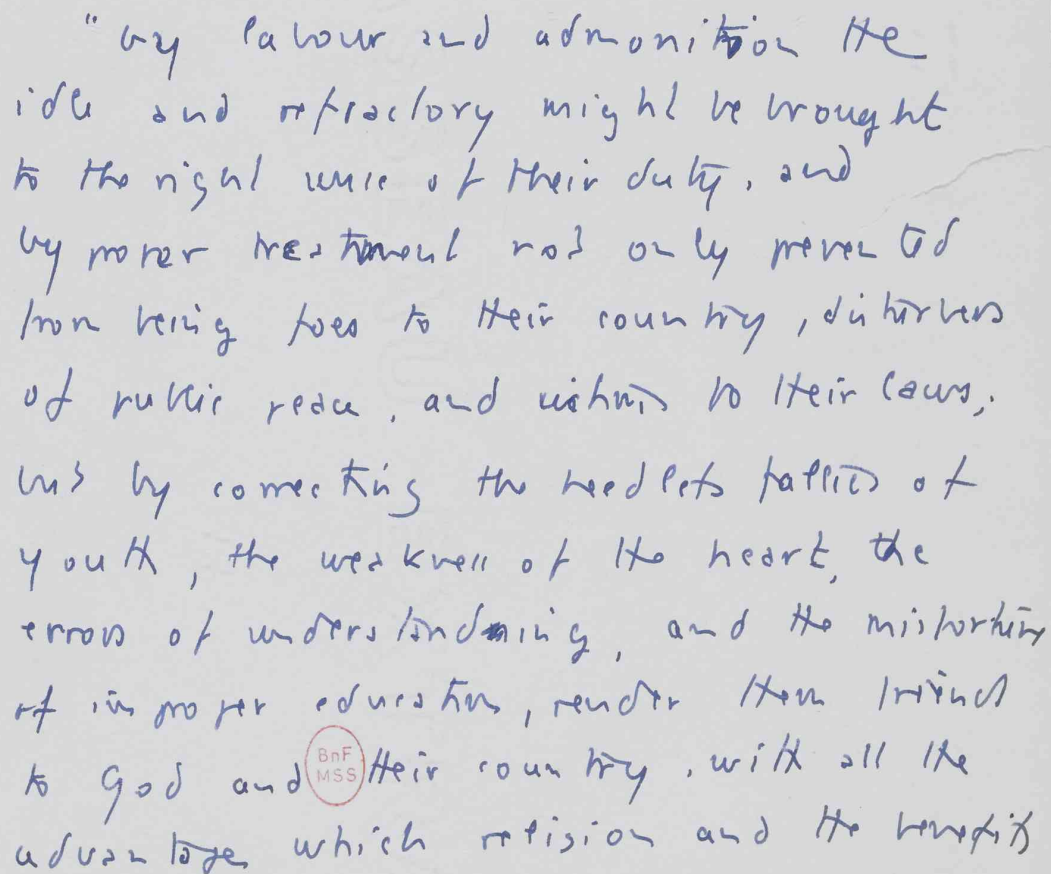 "by labour and admonition the
idle and refractory might be brought
to the right sense of their duty, and
by proper treatment not only prevented
from being foes to their country, disturbers
of public peace, and victims to their laws,
but by correcting the heedless follies of
youth, the weakness of the heart, the
errors of understanding, and the misfortune
of improper education, render them friends
to God and their country, with all the
BnF
MSS
advantages which religion and the benefits